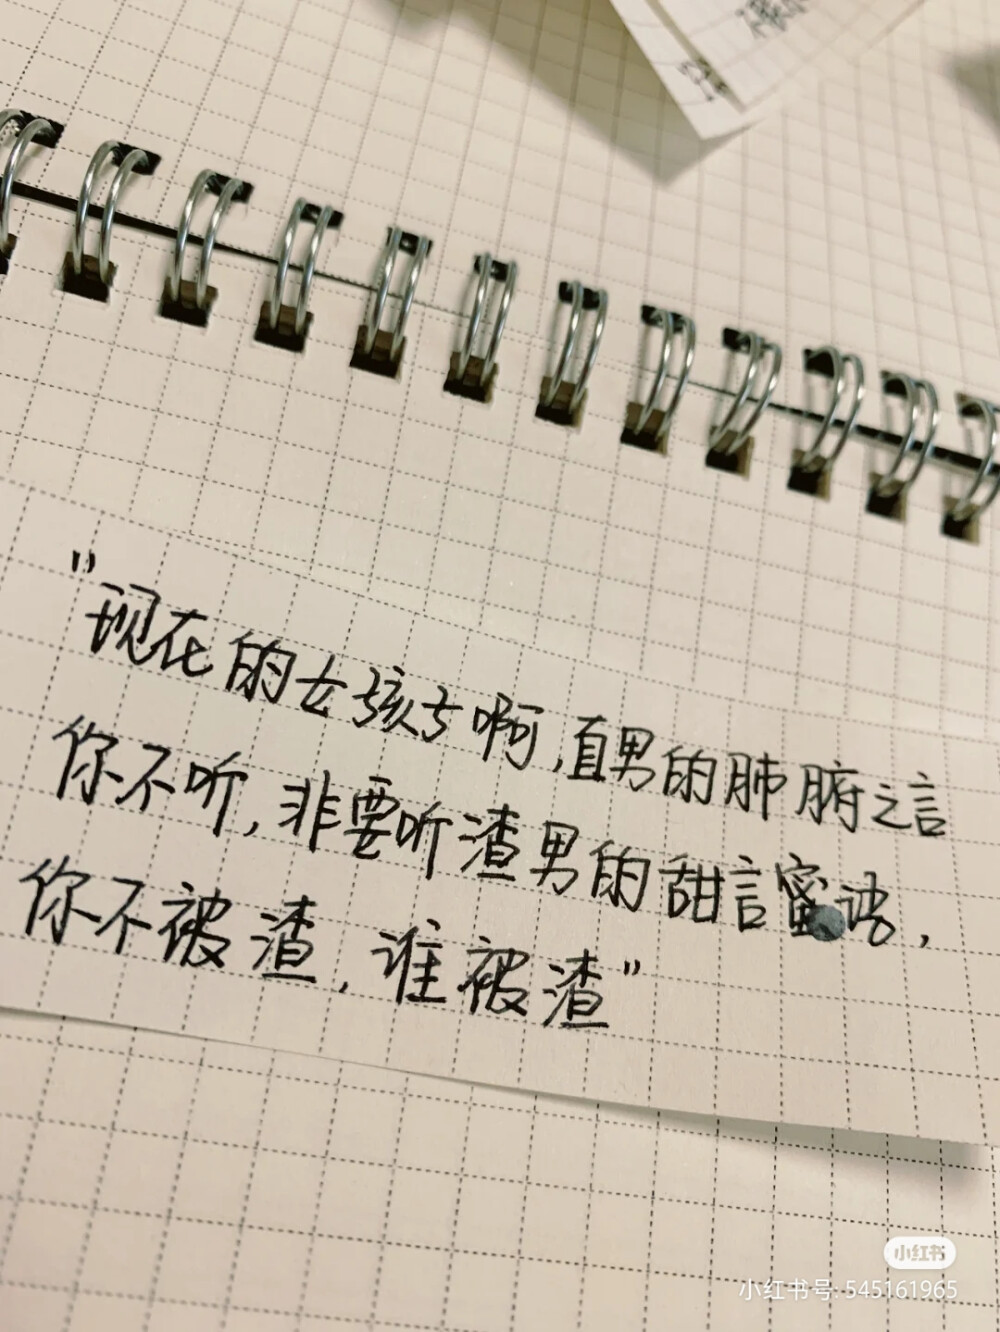 "现在的女孩子啊,直男的肺腑之言
你不听,非要听渣男的甜言蜜语,
你不被渣,谁被渣"
小红书
小红书号:545161965